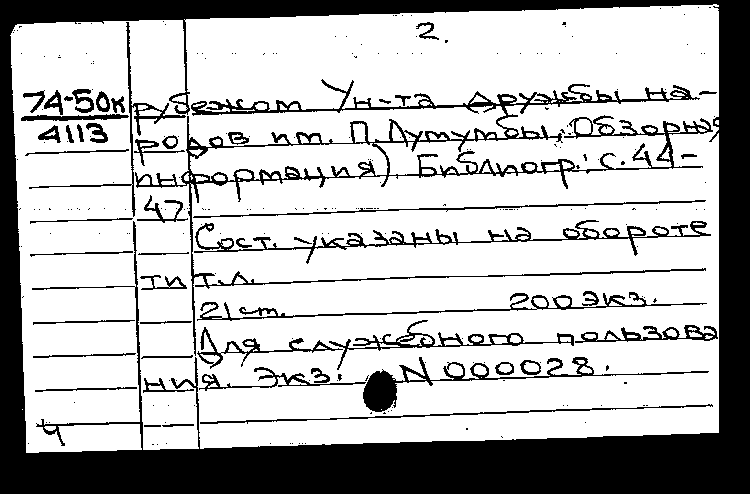 2.
74-50к рубежом Ун-та дружбы на-
4113 родов им. П. Лумумбы, Обзорная
информация). Библиогр.: с. 44-
47
Сост. указаны на обороте
тит. л.
21 ст. 200 экз.
Для служебного пользова
ния. Экз: N 000028.
ч